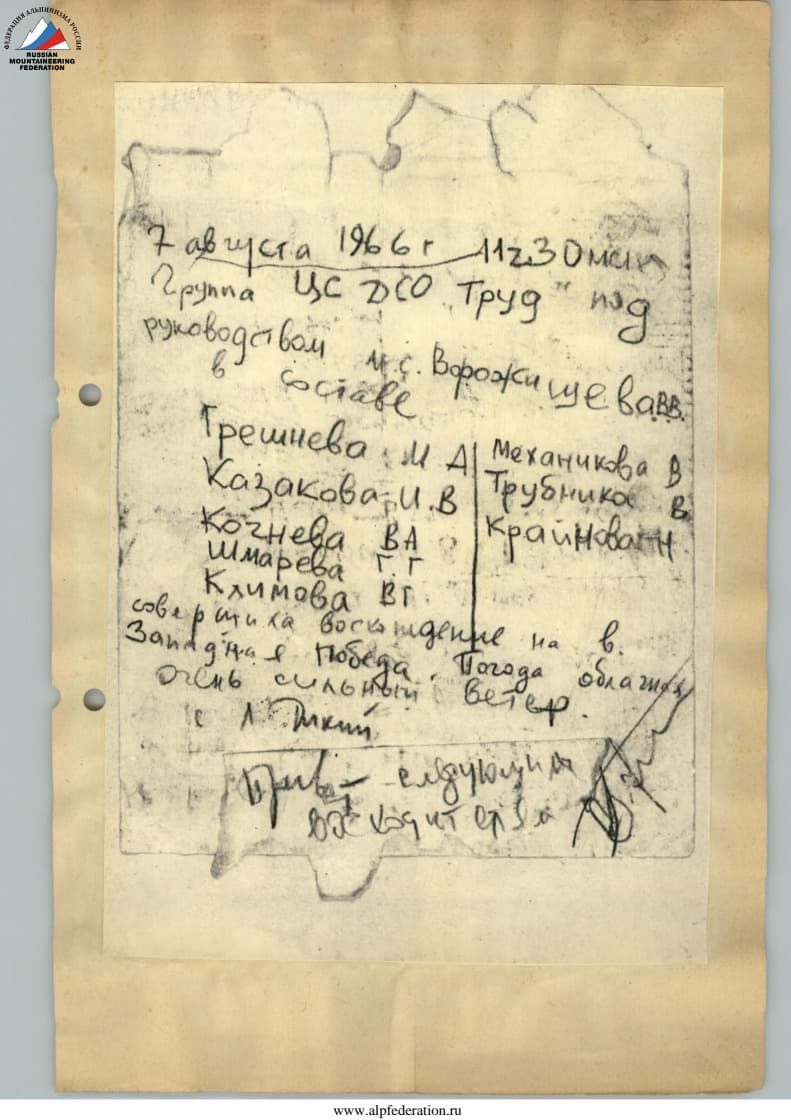 ФЕДЕРАЦИЯ АЛЬПИНИЗМА РОССИИ
RUSSIAN
MOUNTAINEERING
FEDERATION
7 августа 1966 г 11ч30мин
Группа ЦС ДСО "Труд" под
руководством м.с. Ворожищева В.В.
в составе
Грешнева М А
Казакова И.В
Кочнева В А
Шмарева Г Г
Климова В Г.
Механикова В
Трубника В
Крайнова Н
совершила восхождение на в.
Западная Победа. Погода облачная
очень сильный ветер.
с л. Дикий
Привет следующим
восходителям
www.alpfederation.ru